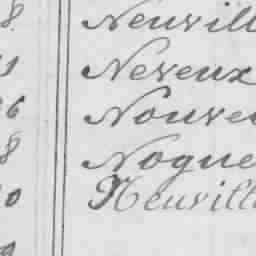 8. Neuvill
Neveux
6 Nouve
8 Nogue
0 Neuvill